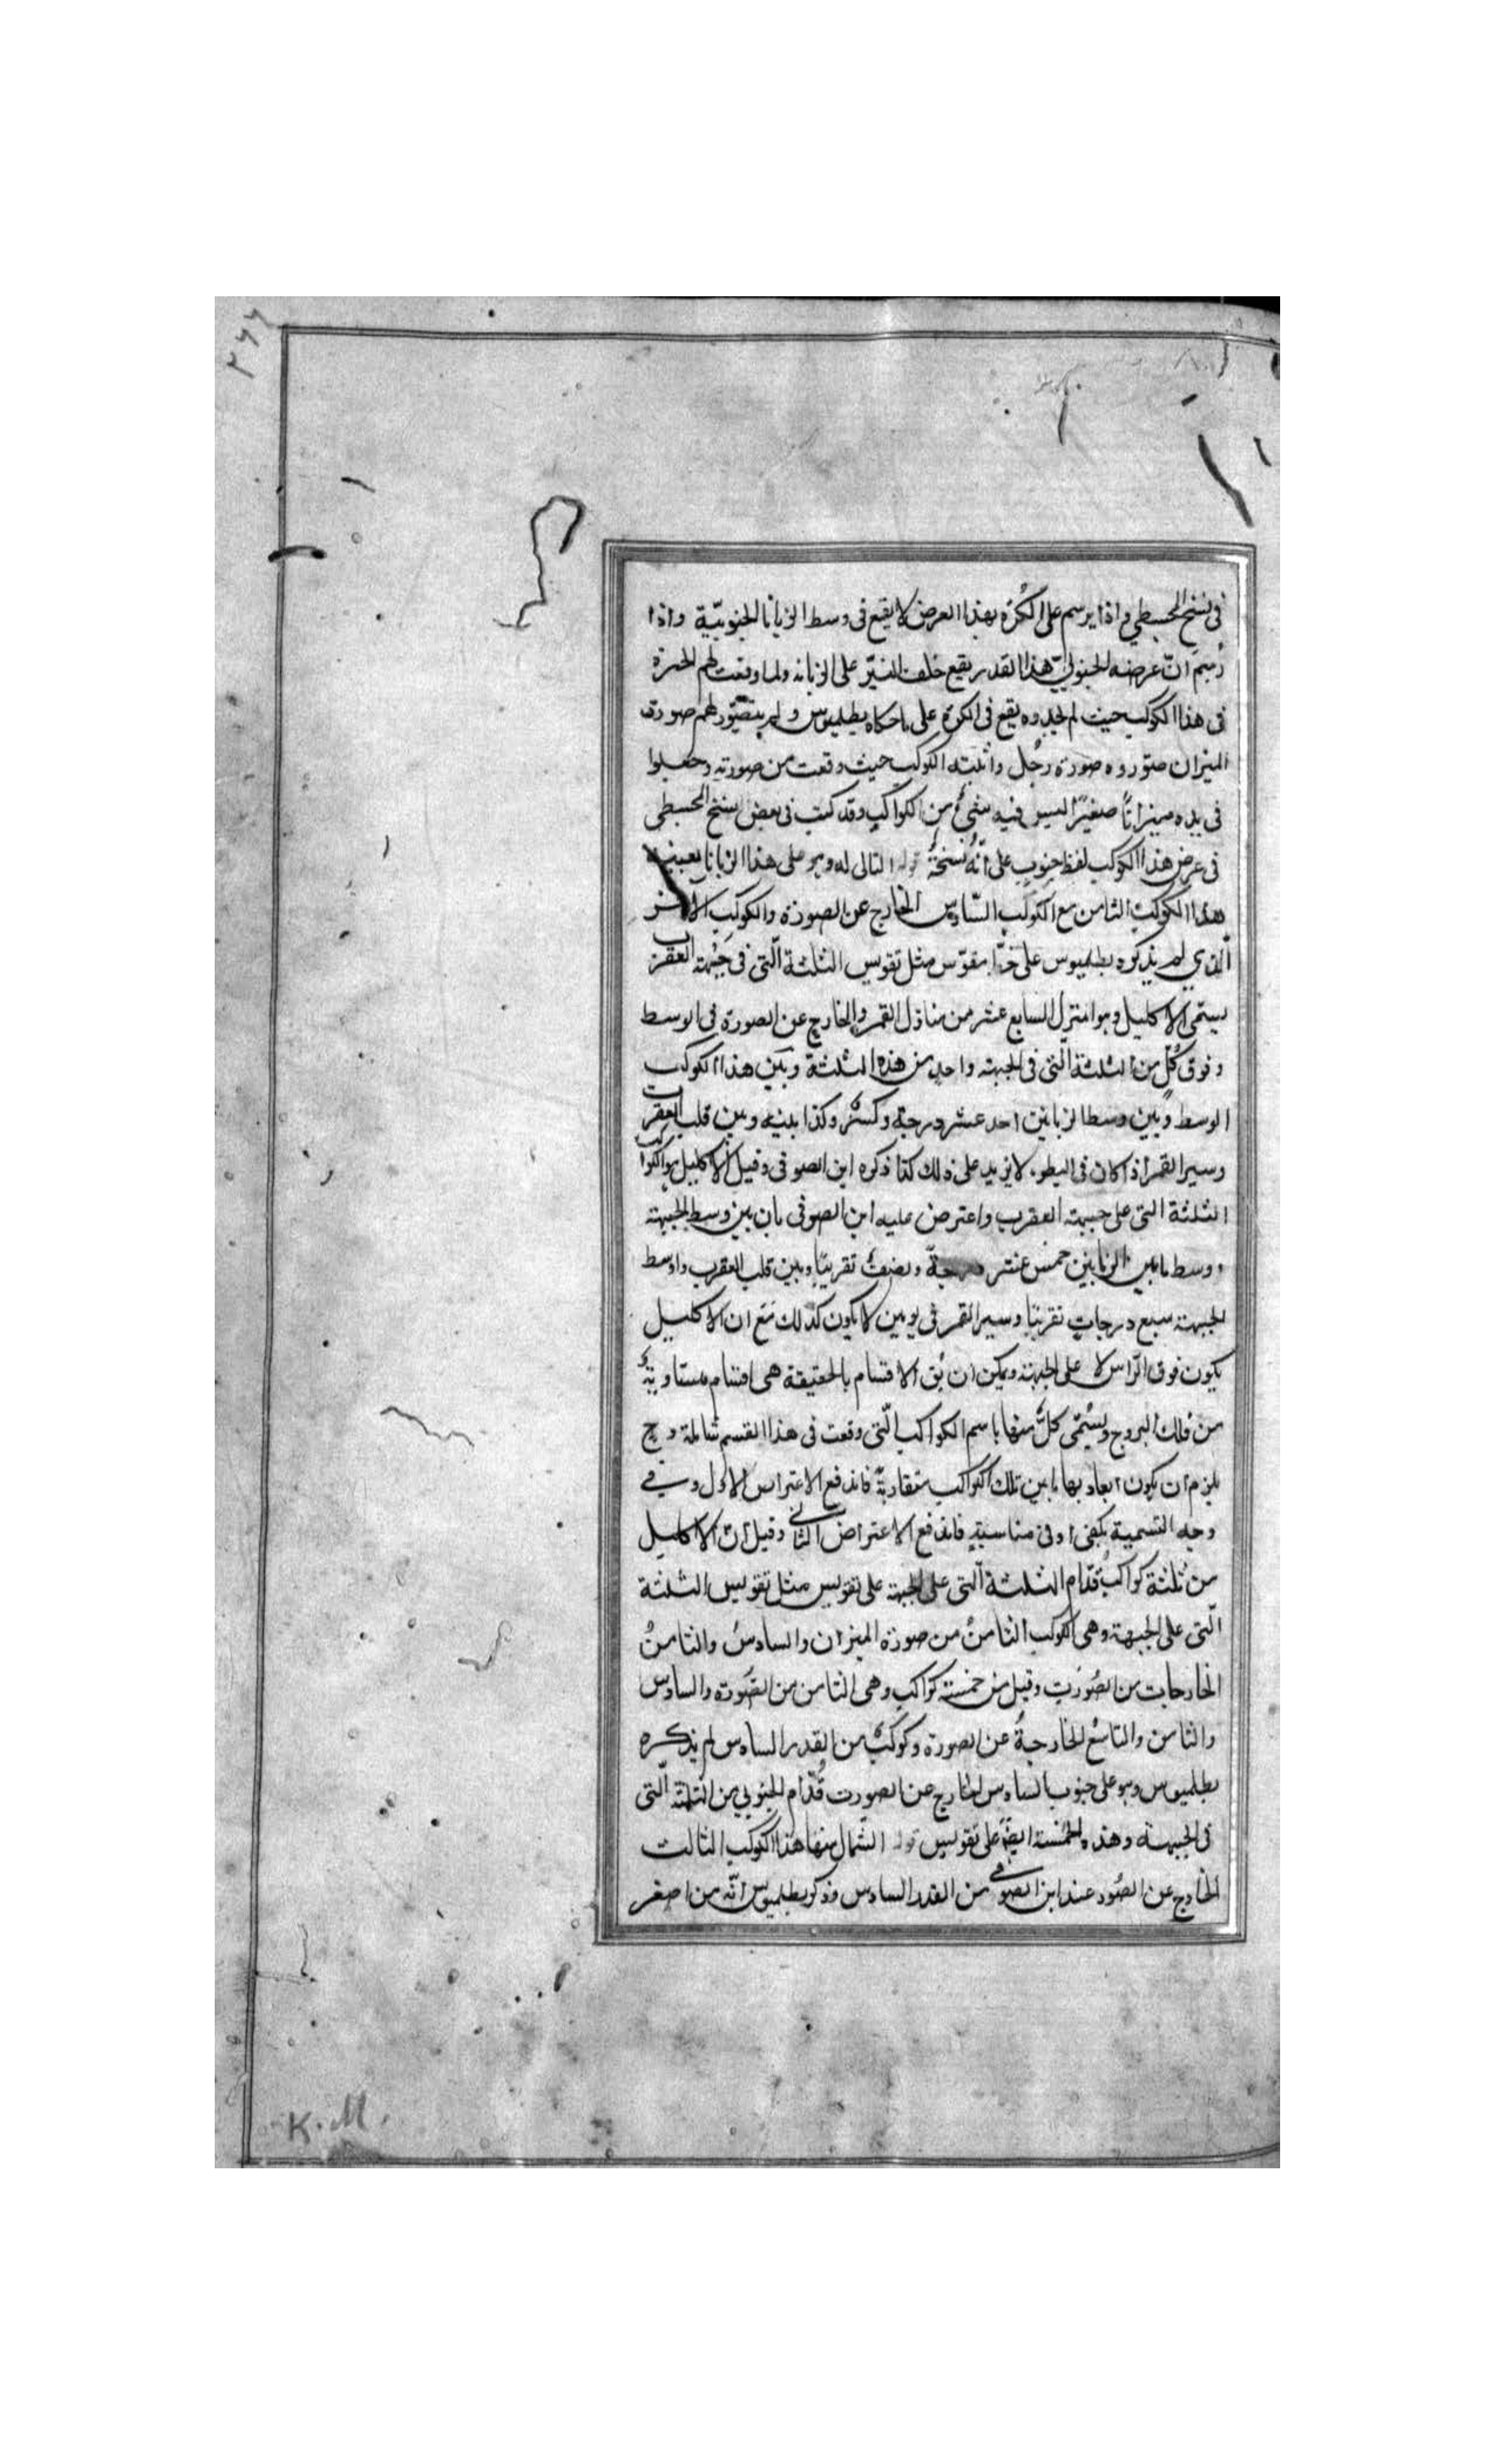 ٢٦٦
في نسخ المجسطي واذا يرسم على الكرة بهذا العرض لا يقع في وسط الزبانا الجنوبية واذا
رسم انّ عرضه الجنوبي هذا القدر يقع خلف النيّر على الزبانه ولما وقعت لهم الحيرة
في هذا الكوكب حيث لم يجدوه يقع في الكرة على ما حكاه بطلميوس ولم يتصوّر لهم صورة
الميزان صوّروه صورة رجل واثبته الكوكب حيث وقعت من صورته وجعلوا
في يده ميزانًا صغيرًا ليس فيه شيئ من الكواكب وقد كتب في بعض نسخ المجسطى
في عرض هذا الكوكب لفظ جنوب على انّه نسخة قوله التالى له وهو على هذا الزبانا بعينه
هذا الكوكب الثامن مع الكوكب السّادس الخارج عن الصورة والكوكب الآخر
الذي لم يذكره بطلميوس على خطّ مقوّس مثل تقويس الثلثة الّتى في جبهة العقرب
يسمّى الاكليل وهو المنزل السابع عشر من منازل القمر والخارج عن الصورة في الوسط
وفوق كلّ من الثلثة الّتى في الجبهة واحد من هذه الثلثة وبين هذا الكوكب
الوسط وبين وسط الزبانين احد عشر درجة وكسر وكذا بينه وبين قلب العقرب
وسير القمر اذا كان في البطو، لا يزيد على ذلك كذا ذكره ابن الصوفى وقيل الاكليل هو الكواكب
الثلثة التى على جبهة العقرب واعترض عليه ابن الصوفى بان بين وسط الجبهة
ووسط ما بين الزبانين خمس عشر درجة ونصف تقريبًا وبين قلب العقرب واوسط
الجبهة سبع درجات تقريبًا وسير القمر في يومين لا يكون كذلك مع ان الاكليل
يكون فوق الرّاس لا على الجبهة ويمكن ان يق الاقسام بالحقيقة هى اقسام متساوية
من فلك البروج ويسمّى كلّ منها باسم الكواكب الّتى وقعت في هذا القسم شاملة وح
يلزم ان يكون ابعاد بها ما بين تلك الكواكب متقاربة فاندفع الاعتراض الاول وفي
وجه التسمية يكفى ادنى مناسبة فاندفع الاعتراض الثانى وقيل انّ الاكليل
من ثلثة كواكب قدّام الثلثة الّتى على الجبهة على تقويس مثل تقويس الثلثة
الّتى على الجبهة وهى الكوكب الثامن من صورة الميزان والسادس والثامن
الخارجات من الصورت وقيل من خمسة كواكب وهى الثامن من الصّورة والسادس
والثامن والتاسع الخارجة عن الصورة وكوكب من القدر السادس لم يذكره
بطلميوس وهو على جنوب السادس الخارج عن الصورت قدّام الجنوبي من الثلثة الّتى
في الجبهة وهذه الخمسة ايضً على تقويس قوله الشمال منها هذا الكوكب الثالث
الخارج عن الصور عند ابن الصوفي من القدر السادس وذكر بطلميوس انّه من اصغر
K. M.